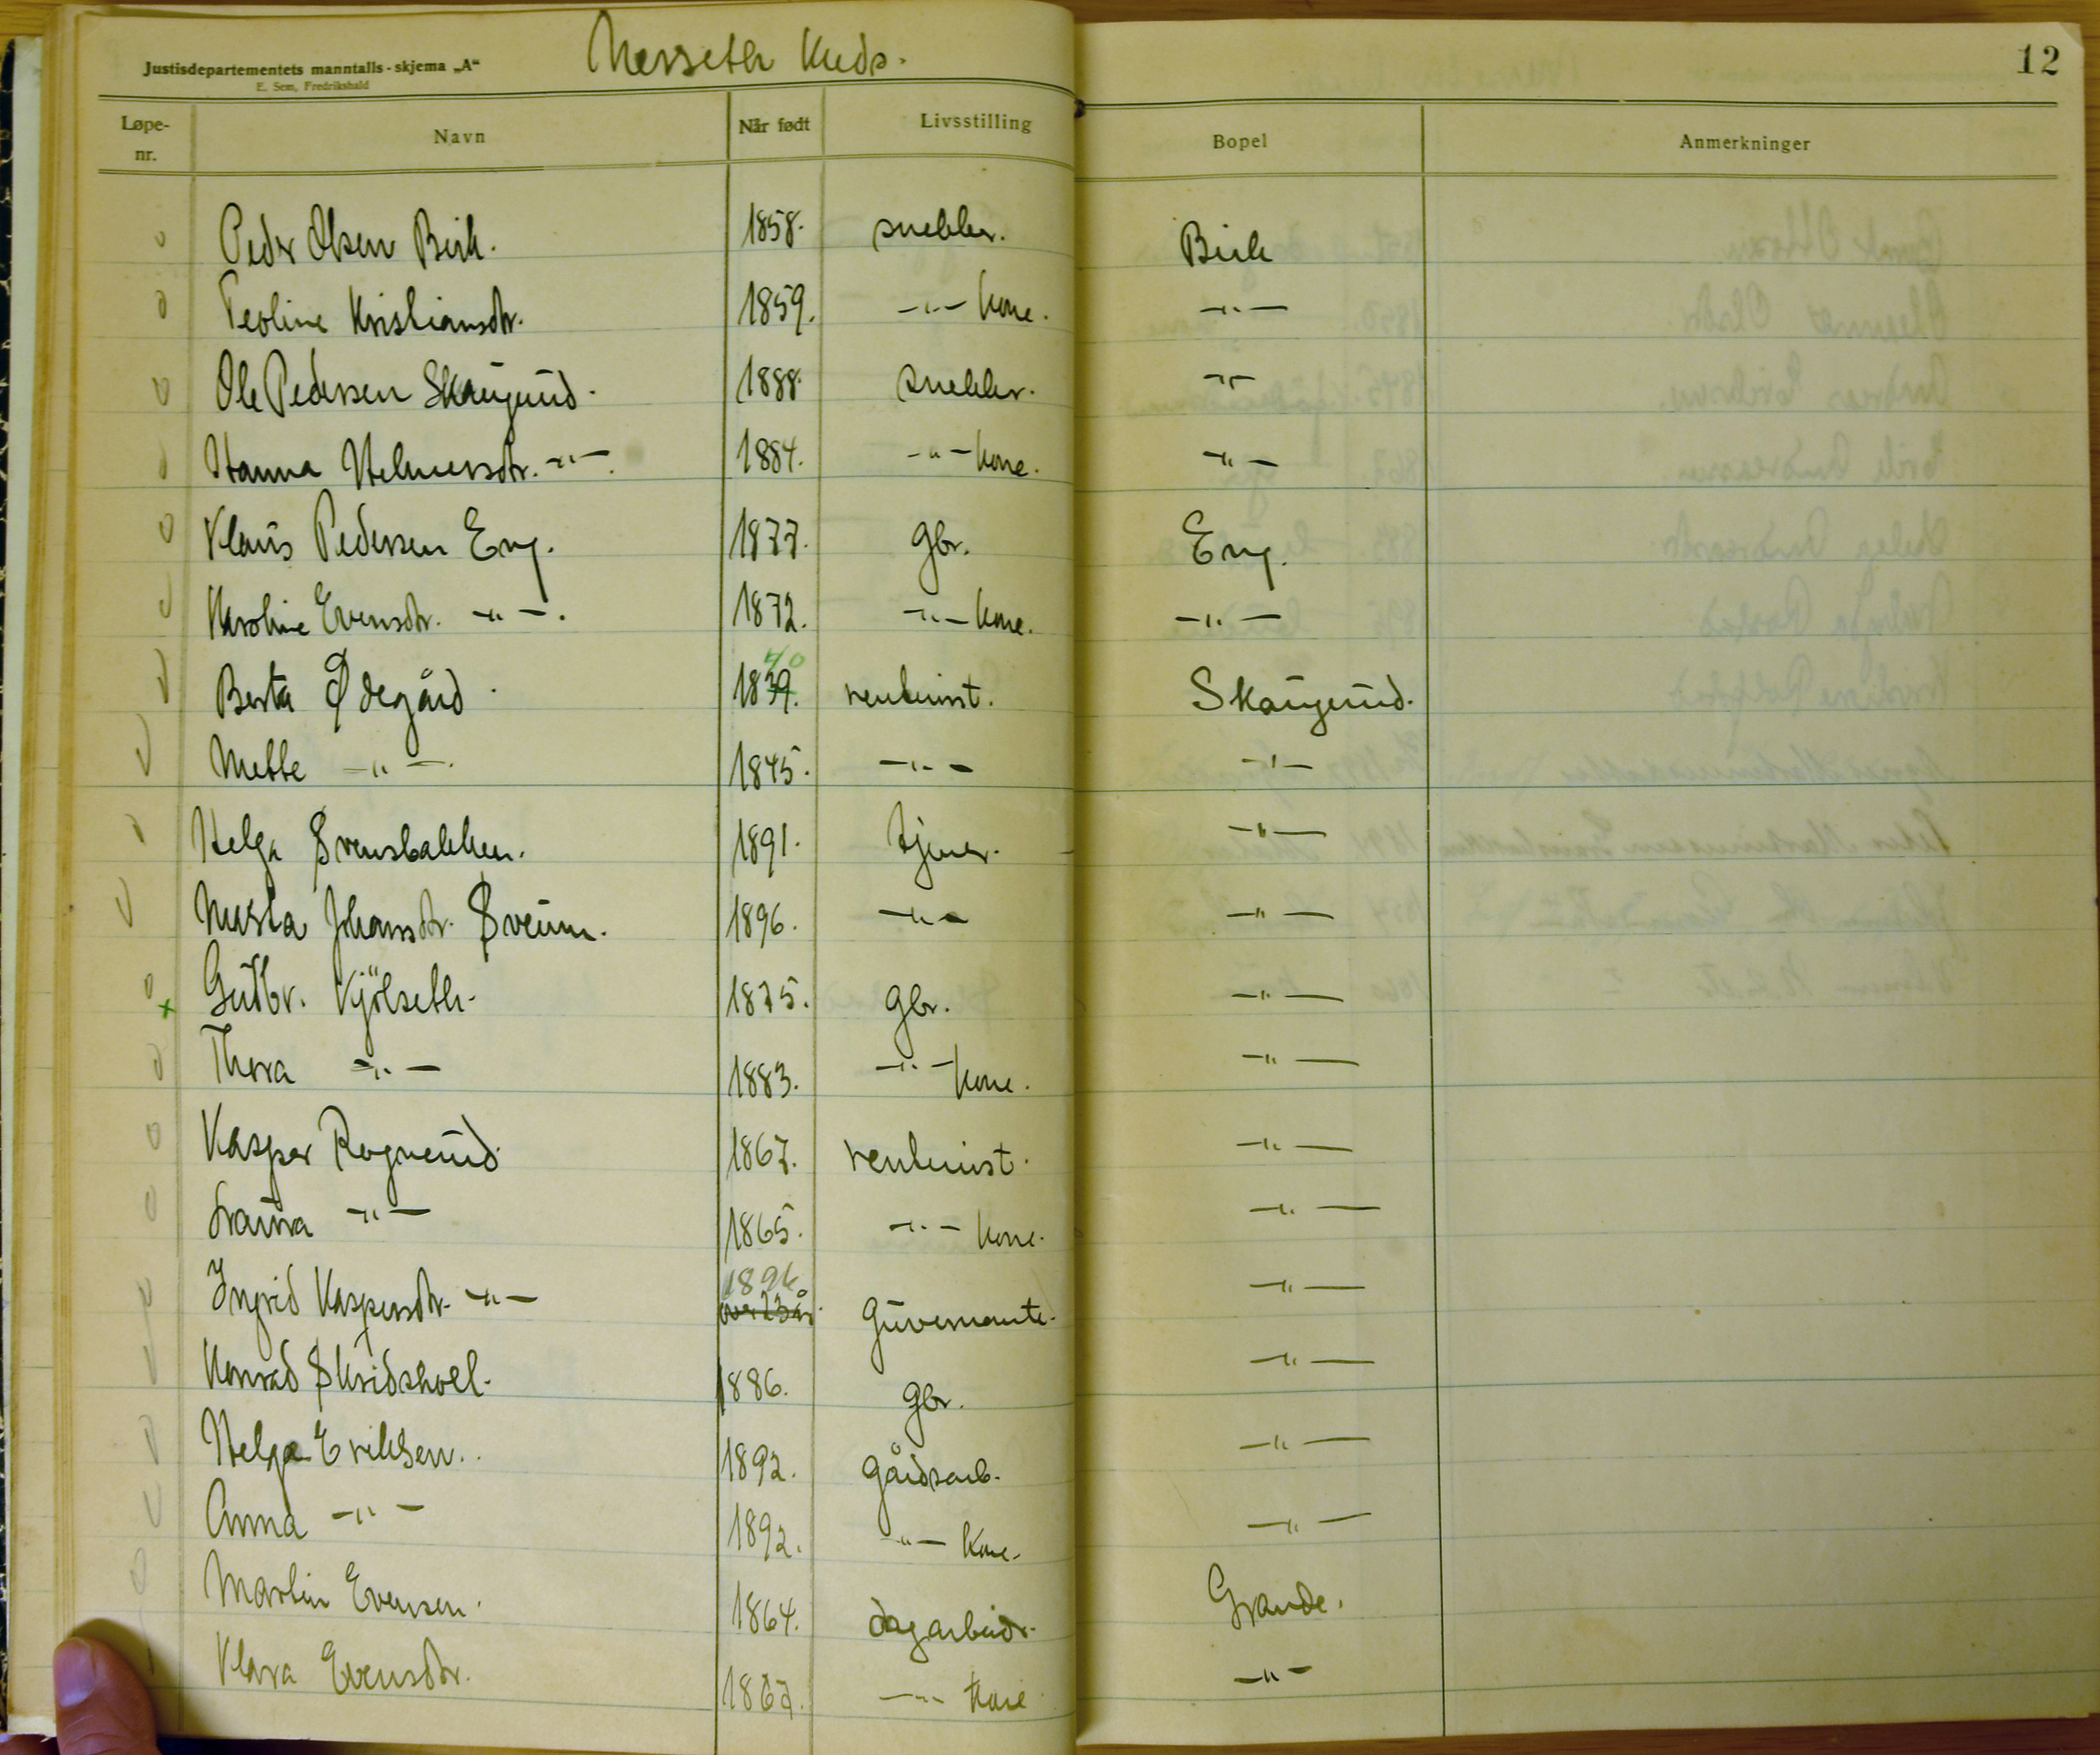 Justisdepartementets manntalls-skjema „A“
E. Sem, Fredrikshald
Messeth Kreds.
12
Løpe-nr. Navn Når født Livsstilling Bopel Anmerkninger
Peder Olsen Birk. 1858. snekker. Birk
Peoline Kristiansdr. 1859. -"- kone. -"-
Ole Pedersen Skaugerud. 1888. snekker. -"-
Hanna Helmersdr. -"-. 1884. -"- kone. -"-
Klaus Pedersen Eng. 1877. gbr. Eng.
Karoline Evensdr. -"-. 1872. -"- kone. -"-
Berta Ødegård. 1839. 40 rentenist. Skaugerud.
Mette -"-. 1845. -"- -"-
Helga Svensbakken. 1891. tjener. -"-
Marta Johansdr. Sveum. 1896. -"- -"-
x Gutbr. Kjölseth. 1875. gbr. -"-
Thora -"- 1883. -"- kone. -"-
Kasper Rognerud 1867. rentenist. -"-
Laura -"- 1865. -"- kone. -"-
Ingrid Kaspersdr. -"- 1896 over 23 år. Guvernante. -"-
Konrad Skridshoel. 1886. gbr. -"-
Helge Eriksen. 1892. gårdsarb. -"-
Anna -"- 1892. -"- Kone. -"-
Martin Evensen. 1864. dagarbeidr. Grande.
Klara Evensdtr. 1867. -"- kone -"-